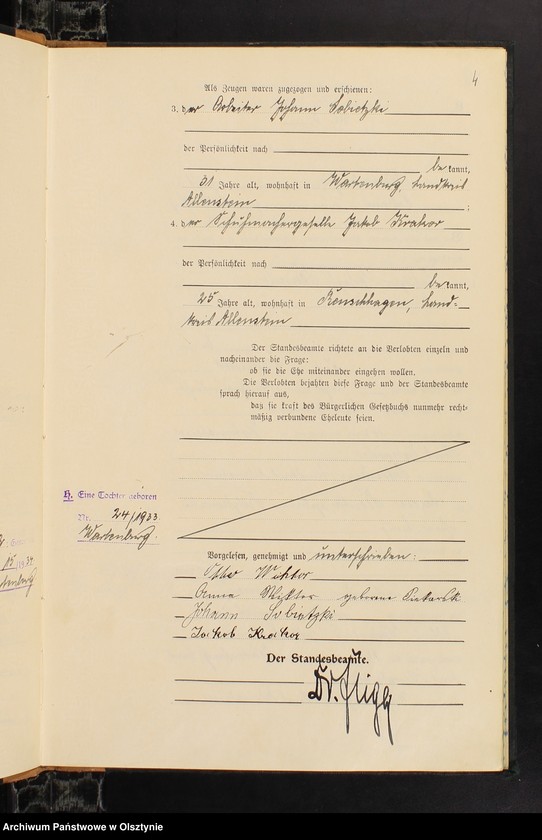 4
Als Zeugen waren zugezogen und erschienen:
3. der Arbeiter Johann Sobietzki
der Persönlichkeit nach
be kannt,
31 Jahre alt, wohnhaft in Wartenburg, Landkreis
Allenstein ;
4. der Schuhmachergeselle Jakob
der Persönlichkeit nach
be kannt,
25 Jahre alt, wohnhaft in Land-
kreis Allenstein
Der Standesbeamte richtete an die Verlobten einzeln und
nacheinander die Frage:
ob sie die Ehe miteinander eingehen wollen.
Die Verlobten bejahten diese Frage und der Standesbeamte
sprach hierauf aus,
daß sie kraft des Bürgerlichen Gesetzbuchs nunmehr recht-
mäßig verbundene Eheleute seien.
H. Eine Tochter geboren
Nr. 24/1933
Wartenburg.
Vorgelesen, genehmigt und unterschrieben:
Otto
Anna geborene
Johann Sobietzki
Jakob
Der Standesbeamte.
Dr.
Archiwum Państwowe w Olsztynie